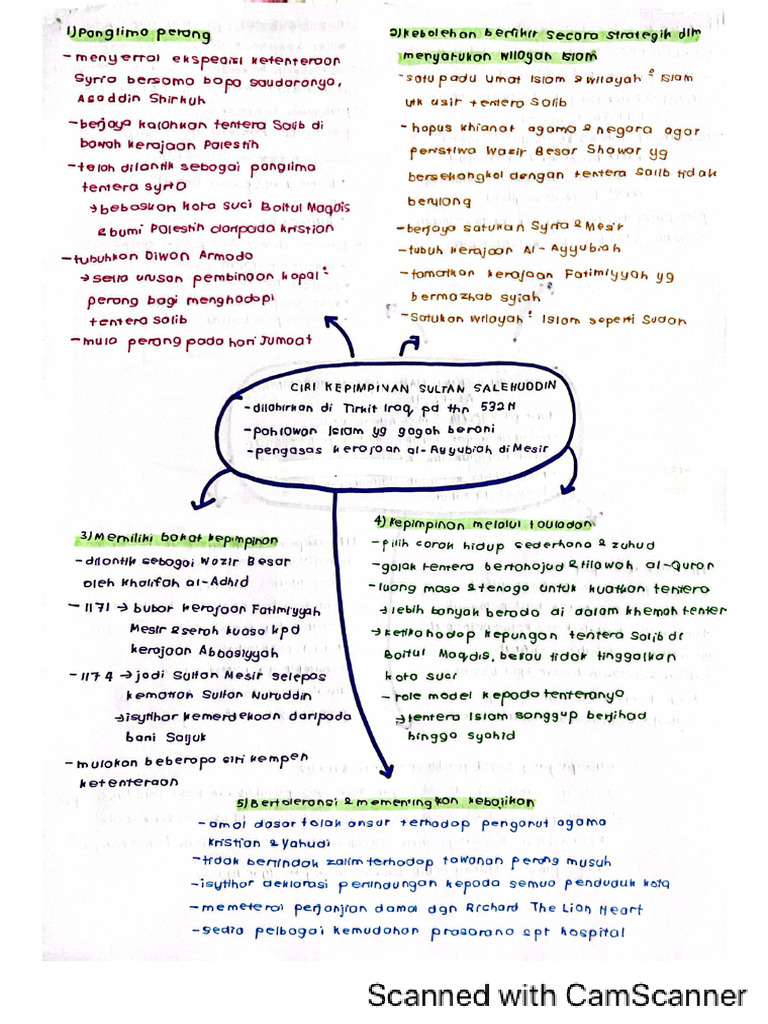 1) Panglima perang
- menyertai ekspedisi ketenteraan
Syria bersama bapa saudaranya,
Asaddin Shirkuh
- berjaya kalahkan tentera Salib di
bawah kerajaan Palestin
- telah dilantik sebagai panglima
tentera syria
→ bebaskan kota suci Baitul Maqdis
& bumi Palestin daripada kristian
- tubuhkan Diwan Armada
→ selia urusan pembinaan kapal²
perang bagi menghadapi
tentera salib
- mula perang pada hari Jumaat
2) Kebolehan berfikir secara strategik dlm
menyatukan wilayah Islam
- satu padu umat Islam & wilayah² Islam
utk usir tentera Salib
- hapus khianat agama & negara agar
peristiwa Wazir Besar Shawar yg
bersekongkol dengan tentera salib tidak
berulang
- berjaya satukan Syria & Mesir
- tubuh kerajaan Al-Ayyubiah
- tamatkan kerajaan Fatimiyyah yg
bermazhab syiah
- Satukan wilayah² Islam seperti Sudan
CIRI KEPIMPINAN SULTAN SALEHUDDIN
- dilahirkan di Tirkit Iraq, pd thn 532H
- pahlawan Islam yg gagah berani
- pengasas kerajaan al-Ayyubiah di Mesir
3) Memiliki bakat kepimpinan
- dilantik sebagai Wazir Besar
oleh khalifah al-Adhid
- 1171 → bubar kerajaan Fatimiyyah
Mesir & serah kuasa kpd
kerajaan Abbasiyyah
- 1174 → jadi Sultan Mesir selepas
kematian Sultan Nuruddin
→ isytihar kemerdekaan daripada
bani Saljuk
- mulakan beberapa siri kempen
ketenteraan
4) Kepimpinan melalui tauladan
- pilih corak hidup sederhana & zuhud
- galak tentera bertahajud & tilawah al-Quran
- luang masa & tenaga untuk kuatkan tentera
→ lebih banyak berada di dalam khemah tenter
→ ketika hadap kepungan tentera Salib di
Baitul Maqdis, beliau tidak tinggalkan
kota suci
- role model kepada tenteranya
→ tentera Islam sanggup berjihad
hingga syahid
5) Bertoleransi & mementingkan kebajikan
- amal dasar tolak ansur terhadap penganut agama
kristian & yahudi
- tidak bertindak zalim terhadap tawanan perang musuh
- isytihar deklarasi perlindungan kepada semua penduduk kota
- memeterai perjanjian damai dgn Richard The Lion Heart
- sedia pelbagai kemudahan prasarana spt hospital
Scanned with CamScanner